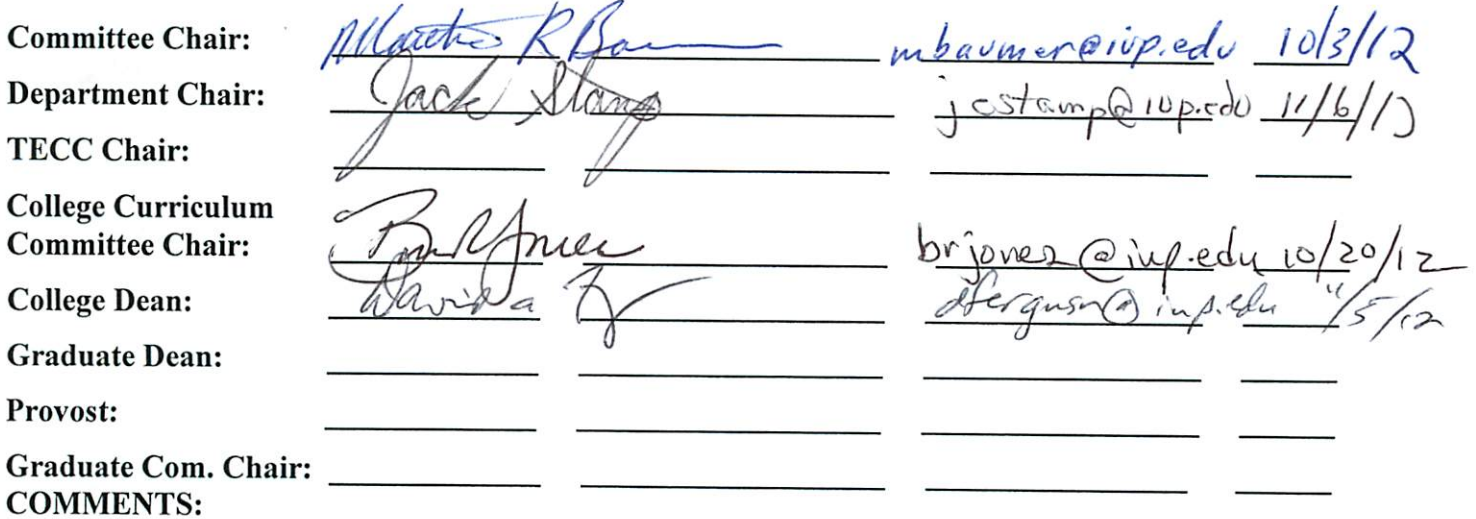 Committee Chair: R Ba mbaumer@iup.edu 10/3/12
Department Chair: Jack Stamp jcstamp@iup.edu 11/6/12
TECC Chair:
College Curriculum
Committee Chair: brjones@iup.edu 10/20/12
College Dean: David a dferguson@iup.edu 11/5/12
Graduate Dean:
Provost:
Graduate Com. Chair:
COMMENTS: